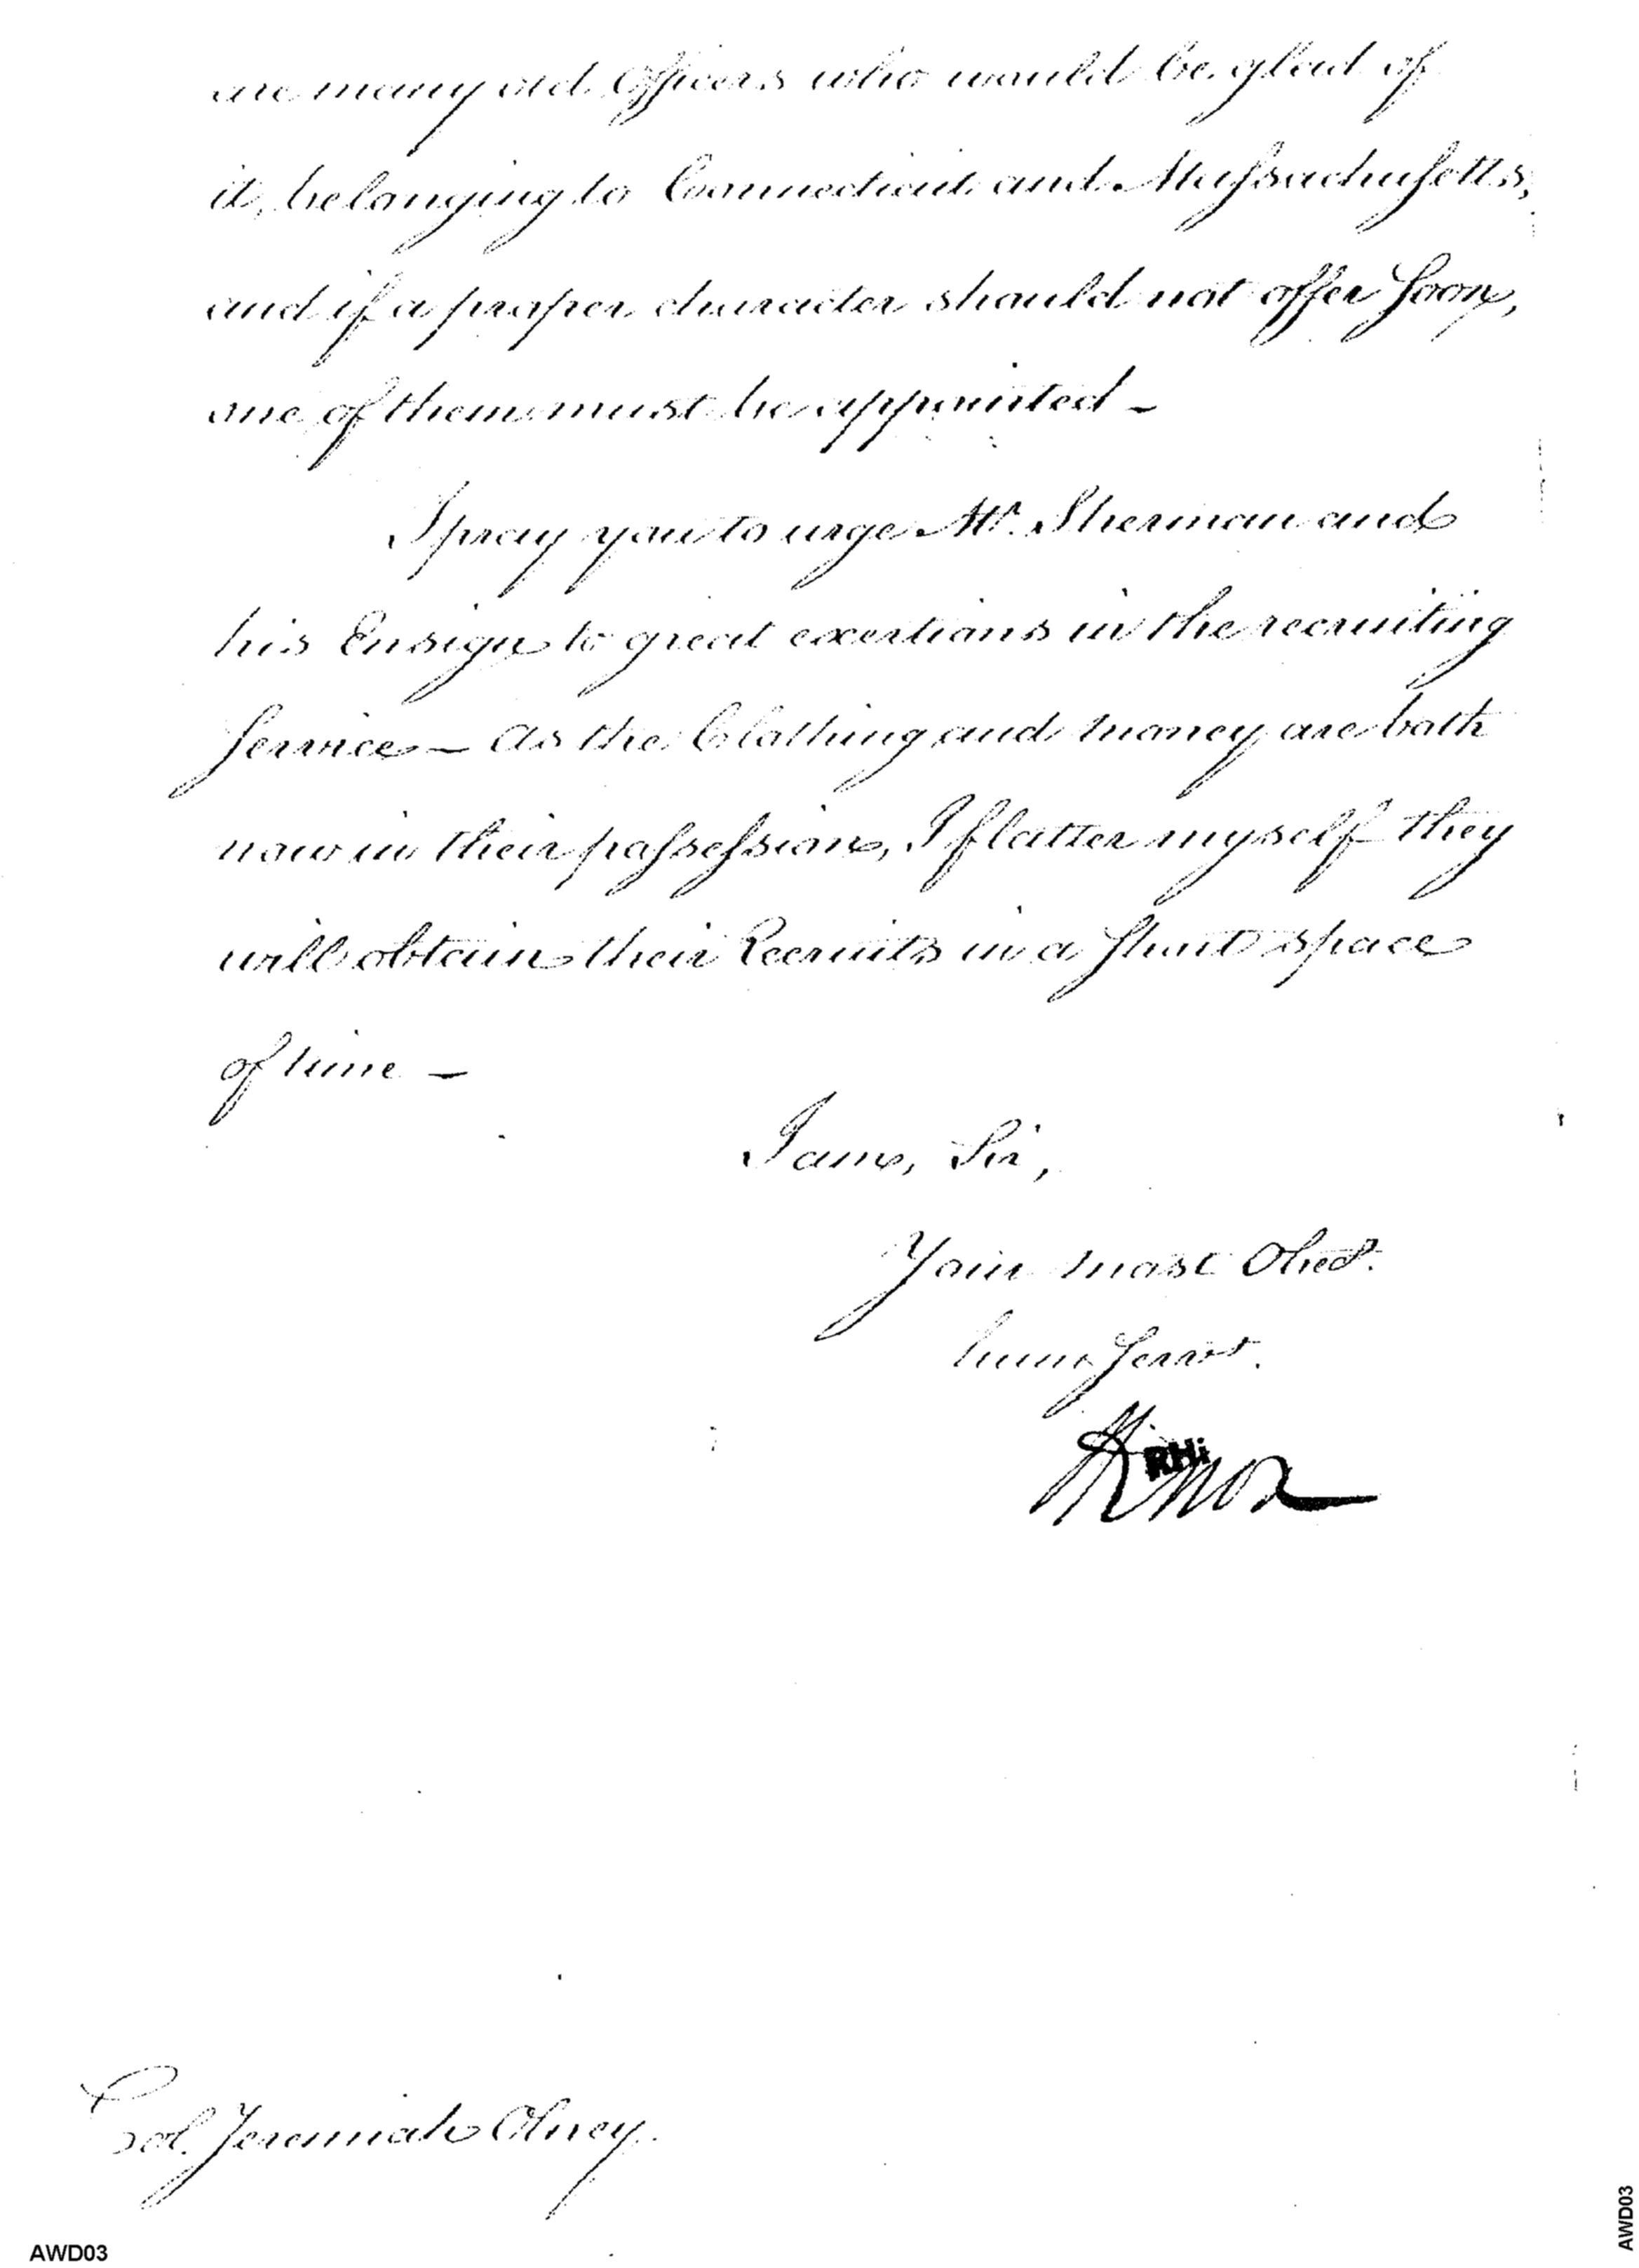 are many old officers who would be glad of
it, belonging to Connecticut and Massachusetts,
and if a proper character should not offer soon,
one of them must be appointed –
I pray you to urge Mr. Sherman and
his Ensign to great exertions in the recruiting
service – As the Clothing and money are both
now in their possession, I flatter myself they
will obtain their Recruits in a short space
of time –
I am, Sir,
Your most Obed.
hum Servt.
HKnox
RHi
Col. Jeremiah Olney.
AWD03
AWD03